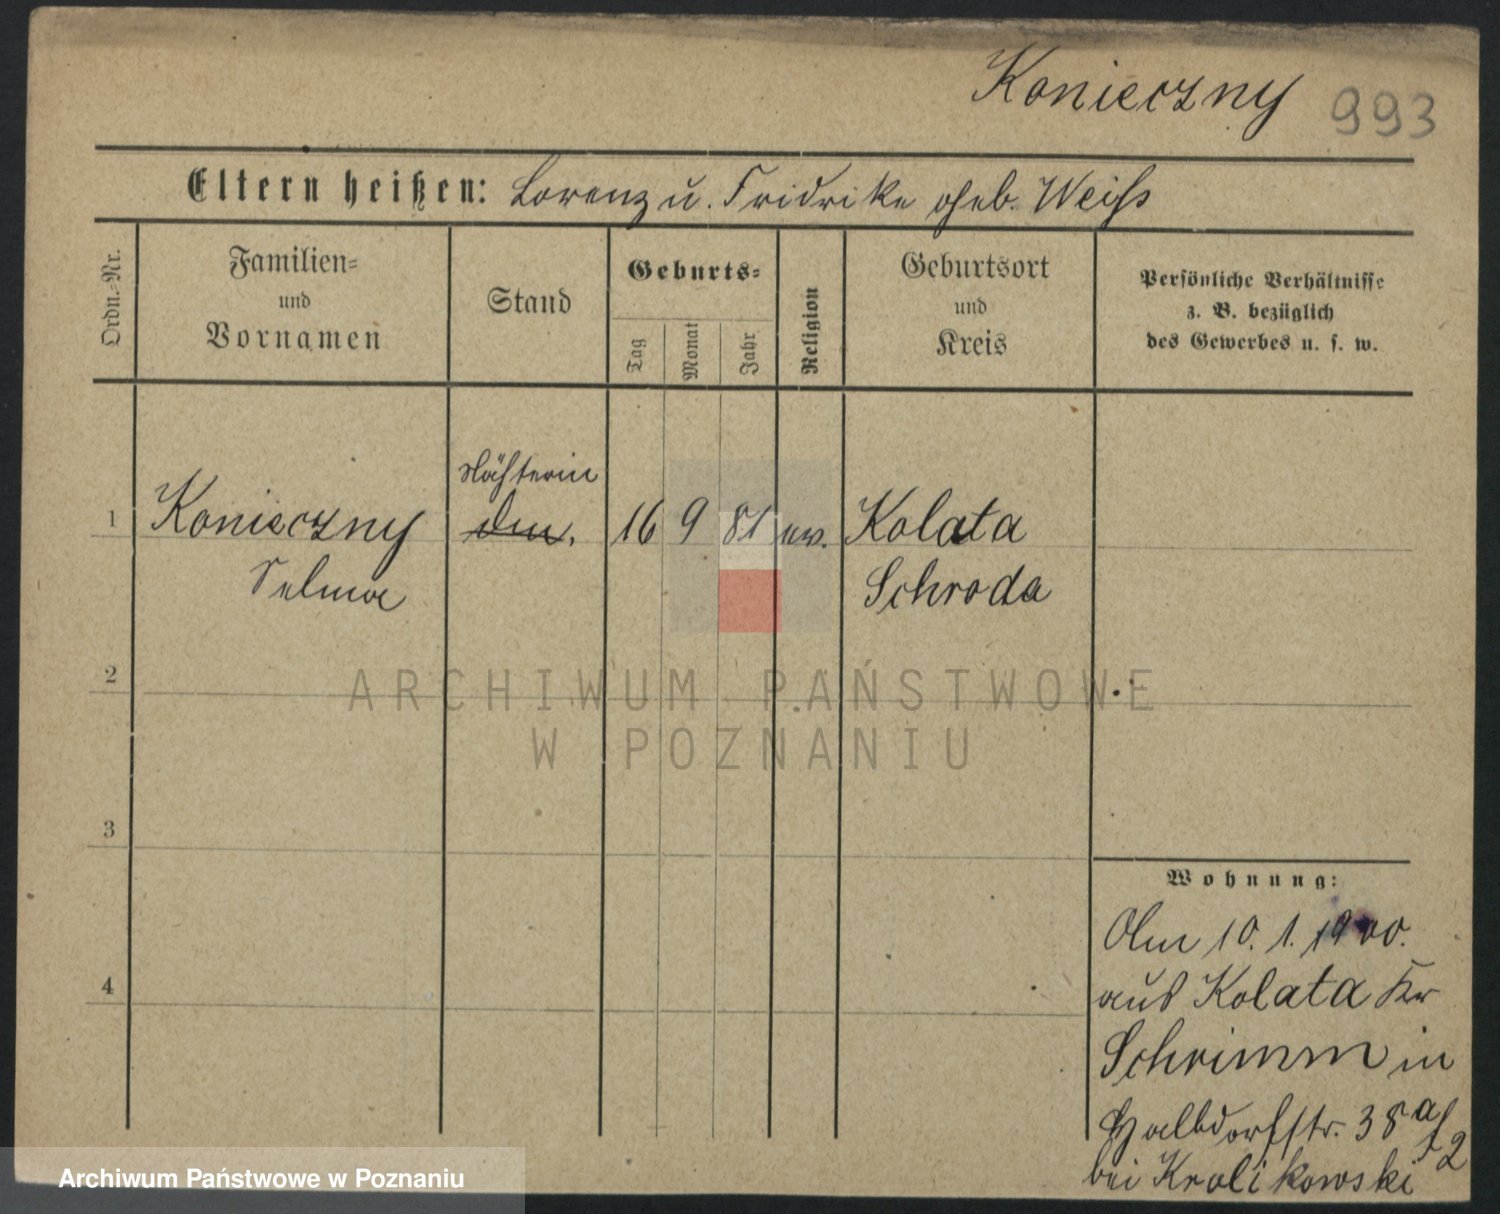 Konieczny 993
Eltern heißen: Lorenz u. Fridrike geb. Weiss
Ordn.-Nr.
Familien-
und
Vornamen
Stand
Geburts-
Tag
Monat
Jahr
Religion
Geburtsort
und
Kreis
Persönliche Verhältnisse
z. B. bezüglich
des Gewerbes u. s. w.
Nähterin
1 Konieczny 16 9 81 ev. Kolata
Selma Schroda
2
ARCHIWUM PAŃSTWOWE
W POZNANIU
3
4
Wohnung:
Am 10. 1. 1900.
aus Kolata Kr
Schrimm in
Halbdorfstr. 38 a/2
bei Krolikowski
Archiwum Państwowe w Poznaniu